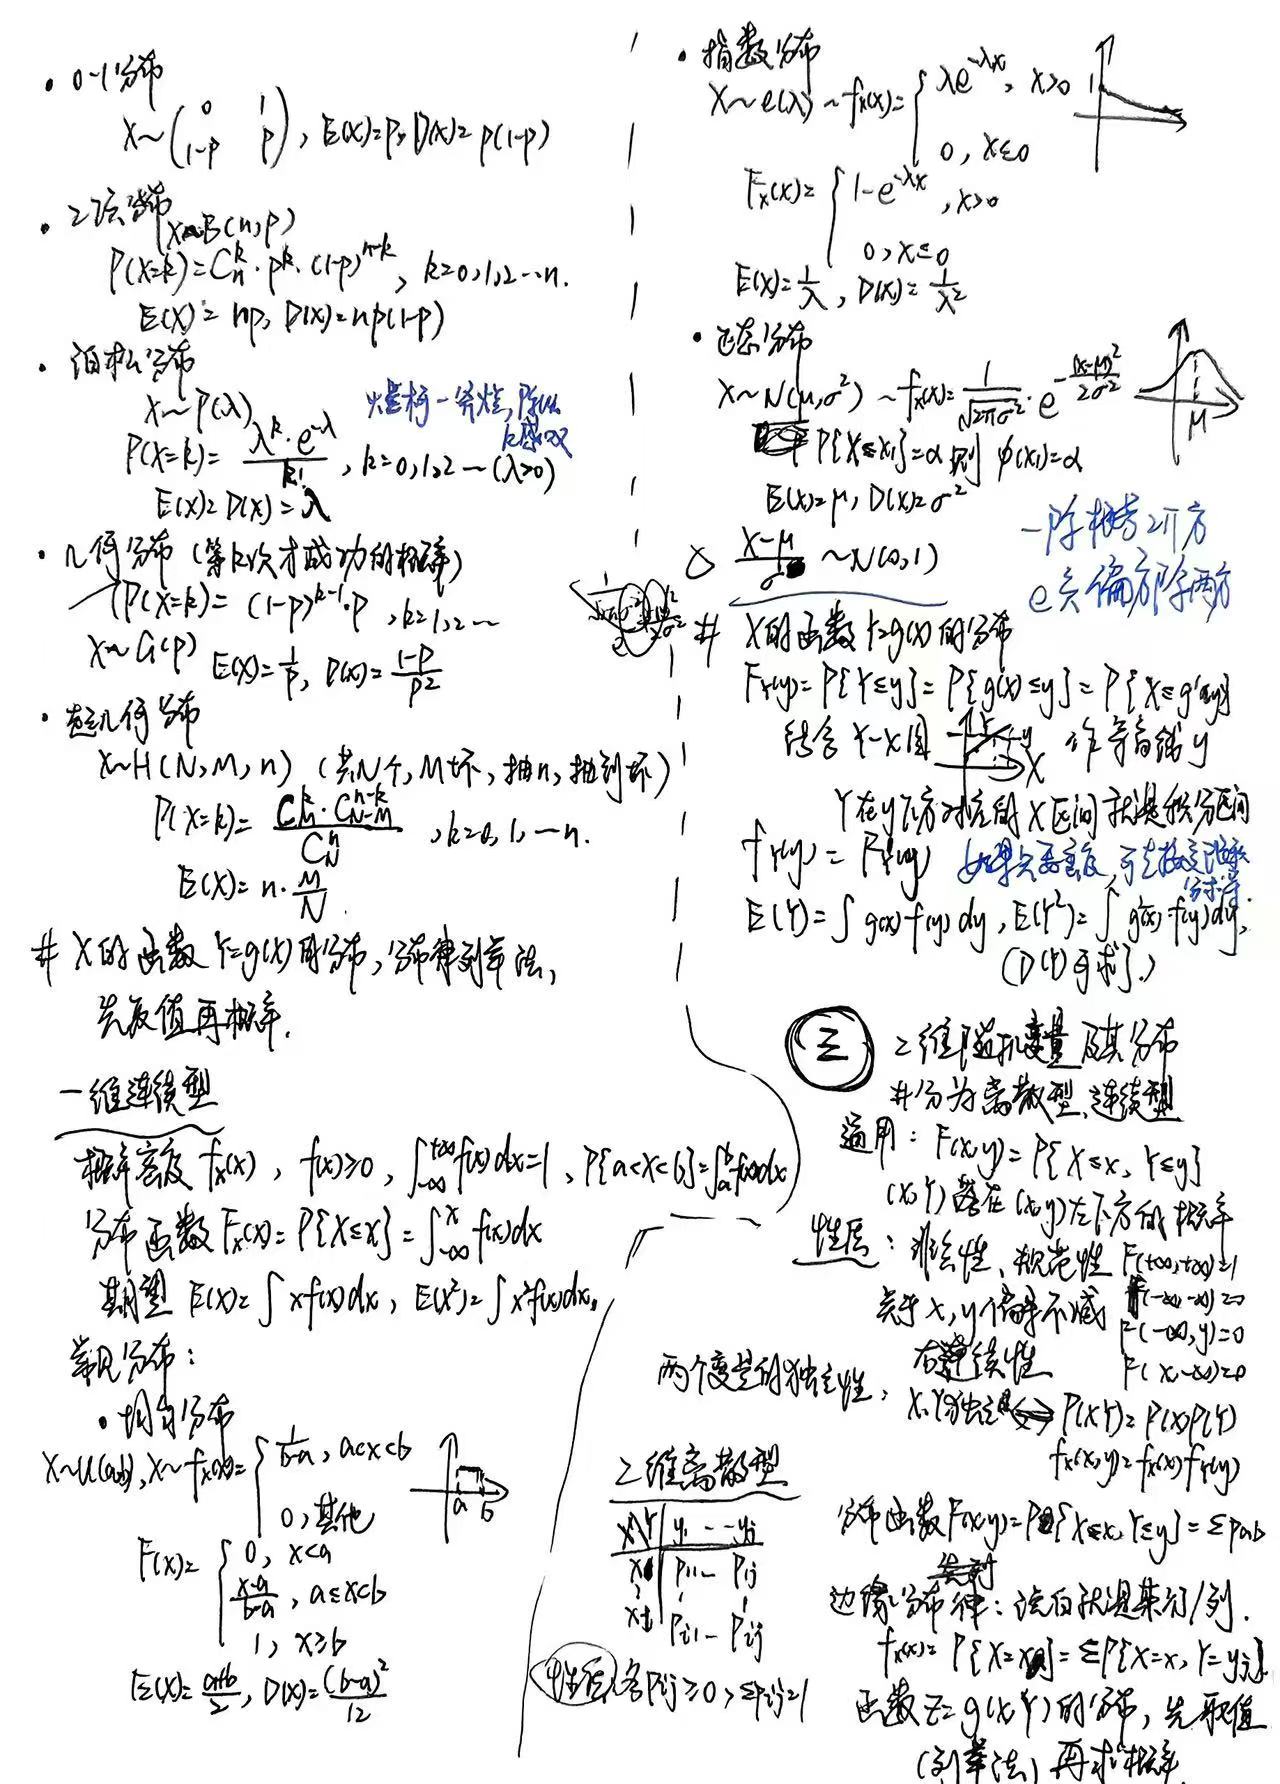 · 0-1分布
X~(0 1 / 1-p p), E(X)=p, D(X)=p(1-p)
· 二项分布
X~B(n,p)
P(X=k)=Cₙᵏ·pᵏ·(1-p)ⁿ⁻ᵏ, k=0,1,2---n.
E(X)=np, D(X)=np(1-p)
· 泊松分布
X~P(λ)
P(X=k)= λᵏ·e^(-λ) / k!, k=0,1,2--(λ>0)
E(X)=D(X)=λ
· 几何分布 (第k次才成功的概率)
P(X=k)=(1-p)^(k-1)·p, k=1,2--
X~G(p) E(X)=1/p, D(X)=(1-p)/p²
· 超几何分布
X~H(N,M,n) (共N个,M坏,抽n,抽到坏)
P(X=k)= C_M^k·C_(N-M)^(n-k) / C_N^n, k=0,1,--n.
E(X)=n·M/N.
# X的函数Y=g(X)的分布,分布律列举法,
先取值再概率.
一维连续型
概率密度 fx(x), f(x)≥0, ∫_{-∞}^{+∞}f(x)dx=1, P{a<X<b}=∫_a^b f(x)dx
分布函数 Fx(x)=P{X≤x}=∫_{-∞}^x f(x)dx
期望 E(X)=∫xf(x)dx, E(X²)=∫x²f(x)dx.
常见分布:
· 均匀分布
X~U(a,b), X~fx(x)= { 1/(b-a), a<x<b
0, 其他
a b
F(x)= { 0, x<a
(x-a)/(b-a), a≤x<b
1, x≥b
E(X)=(a+b)/2, D(X)=(b-a)²/12
· 指数分布
X~e(λ)~fx(x)= { λe^(-λx), x>0
0, x≤0
1
Fx(x)= { 1-e^(-λx), x>0
0, x≤0
E(X)=1/λ, D(X)=1/λ²
· 正态分布
X~N(μ,σ²)~fx(x)=1/√(2πσ²)·e^(-(x-μ)²/2σ²)
μ
P{X≤x₁}=α则 φ(x₁)=α
E(X)=μ, D(X)=σ²
(X-μ)/σ ~N(0,1)
一除根号2π方
e负偏方除两方
# X的函数Y=g(X)的分布
F_Y(y)=P{Y≤y}=P{g(X)≤y}=P{X≤g⁻¹(y)}
结合Y-X图 作等高线y
Y在y下方对应的X区间就是积分区间
f_Y(y)=F_Y'(y)
E(Y)=∫g(x)·f(y)dy, E(Y²)=∫g²(x)·f(y)dy,
(D(Y)可求).
三 二维随机变量及其分布
#分为离散型、连续型
通用: F(x,y)=P{X≤x, Y≤y}
(X,Y)落在(x,y)左下方的概率
性质: 非负性、规范性 F(+∞,+∞)=1
F(-∞,-∞)=0
关于x,y偏导不减
F(-∞,y)=0
右连续性 F(x,-∞)=0
两个变量的独立性:
X,Y独立⟺P(XY)=P(X)P(Y)
fx(x,y)=fx(x)f_Y(y)
二维离散型
X\Y y₁ -- yj
x₁ P₁₁-- P₁j
xi Pi₁-- Pij
性质: 各Pij≥0, ΣPij=1
分布函数F(x,y)=P{X≤x,Y≤y}=ΣPab
边缘分布律: 说白就是某行/列.
fx(x)=P{X=x}=ΣP{X=x,Y=yj}.
函数Z=g(X,Y)的分布,先取值
(列举法)再求概率